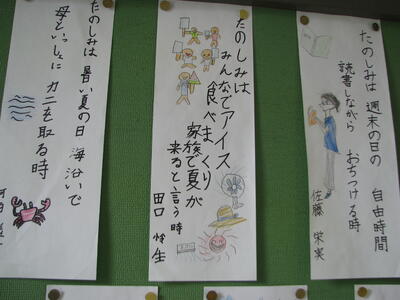 たのしみは 週末の日の 自由時間
読書しながら おちつける時
佐藤 栄実
たのしみは
みんなでアイス
食べまくり
家族で夏が
来ると言う時
田口 怜生
たのしみは 暑い夏の日 海沿いで
母といっしょに カニを取る時